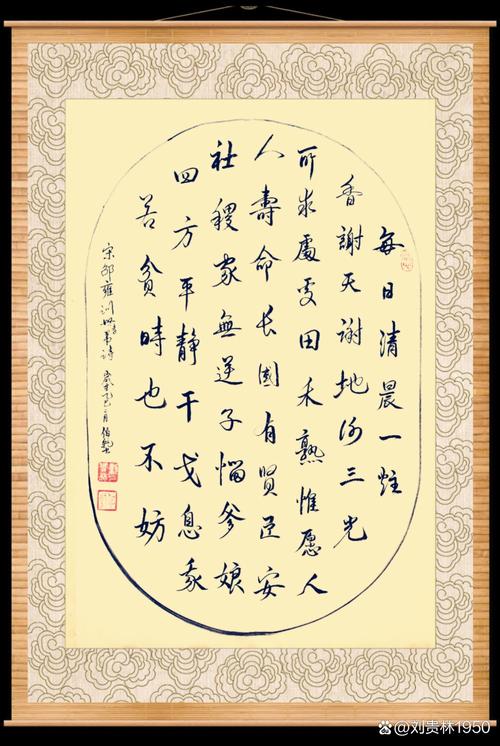 每日清晨一炷
香謝天谢地谢三光
所求處处田禾熟惟愿人
人壽命长國有賢臣安
社稷家無逆子惱爹娘
四方平静干戈息我
若貧時也不妨
宋邵雍训世孝弟诗 歲在乙巳
刘贵林1950